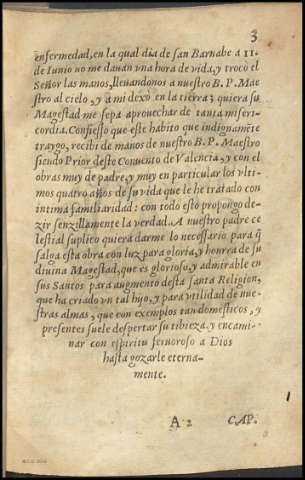 3
enfermedad, en la qual dia de san Barnabe a 11.
de Iunio no me dauan vna hora de vida, y trocò el
Señor las manos, lleuandonos a nuestro B. P. Mae
stro al cielo, y a mi dexò en la tierra; quiera su
Magestad me sepa aprouechar de tanta miseri-
cordia. Confiesso que este habito que indignamẽte
traygo, recibi de manos de nuestro B. P. Maestro
siendo Prior deste Conuento de Valencia, y con el
obras muy de padre, y muy en particular los vlti-
mos quatro años de su vida que le he tratado con
intima familiaridad: con todo esto propongo de-
zir senzillamente la verdad. A nuestro padre ce
lestial suplico quiera darme lo necessario para q̃
salga esta obra con luz para gloria, y honrra de su
diuina Magestad, que es glorioso, y admirable en
sus Santos para augmento desta santa Religion,
que ha criado vn tal hijo, y para vtilidad de nue-
stras almas, que con exemplos tan domesticos, y
presentes suele despertar su tibieza, y encami-
nar con espiritu feruoroso a Dios
hasta gozarle eterna-
mente.
A 2 CAP.